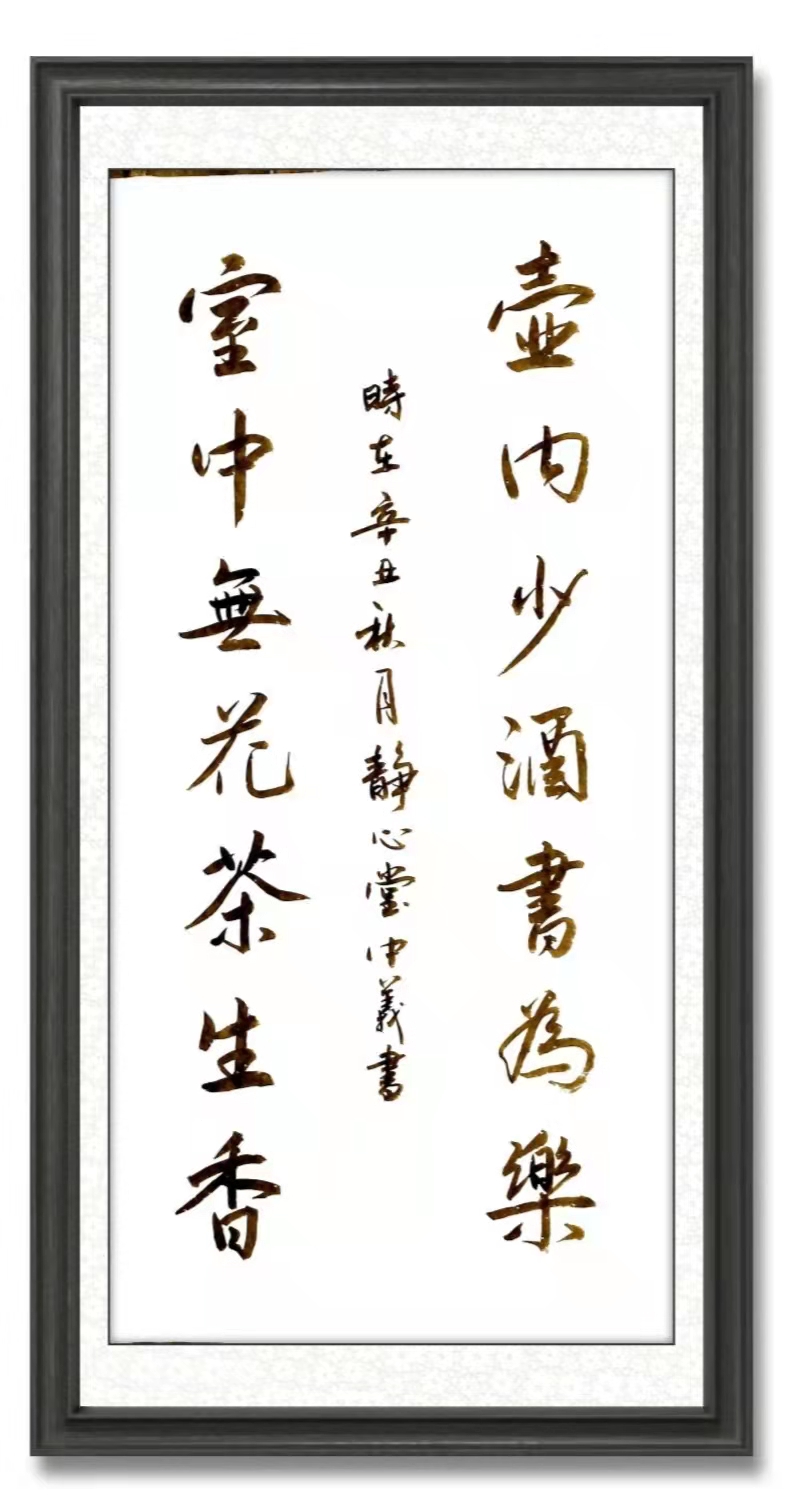 壺内少酒書為樂
時在辛丑秋月靜心堂中義書
室中無花茶生香